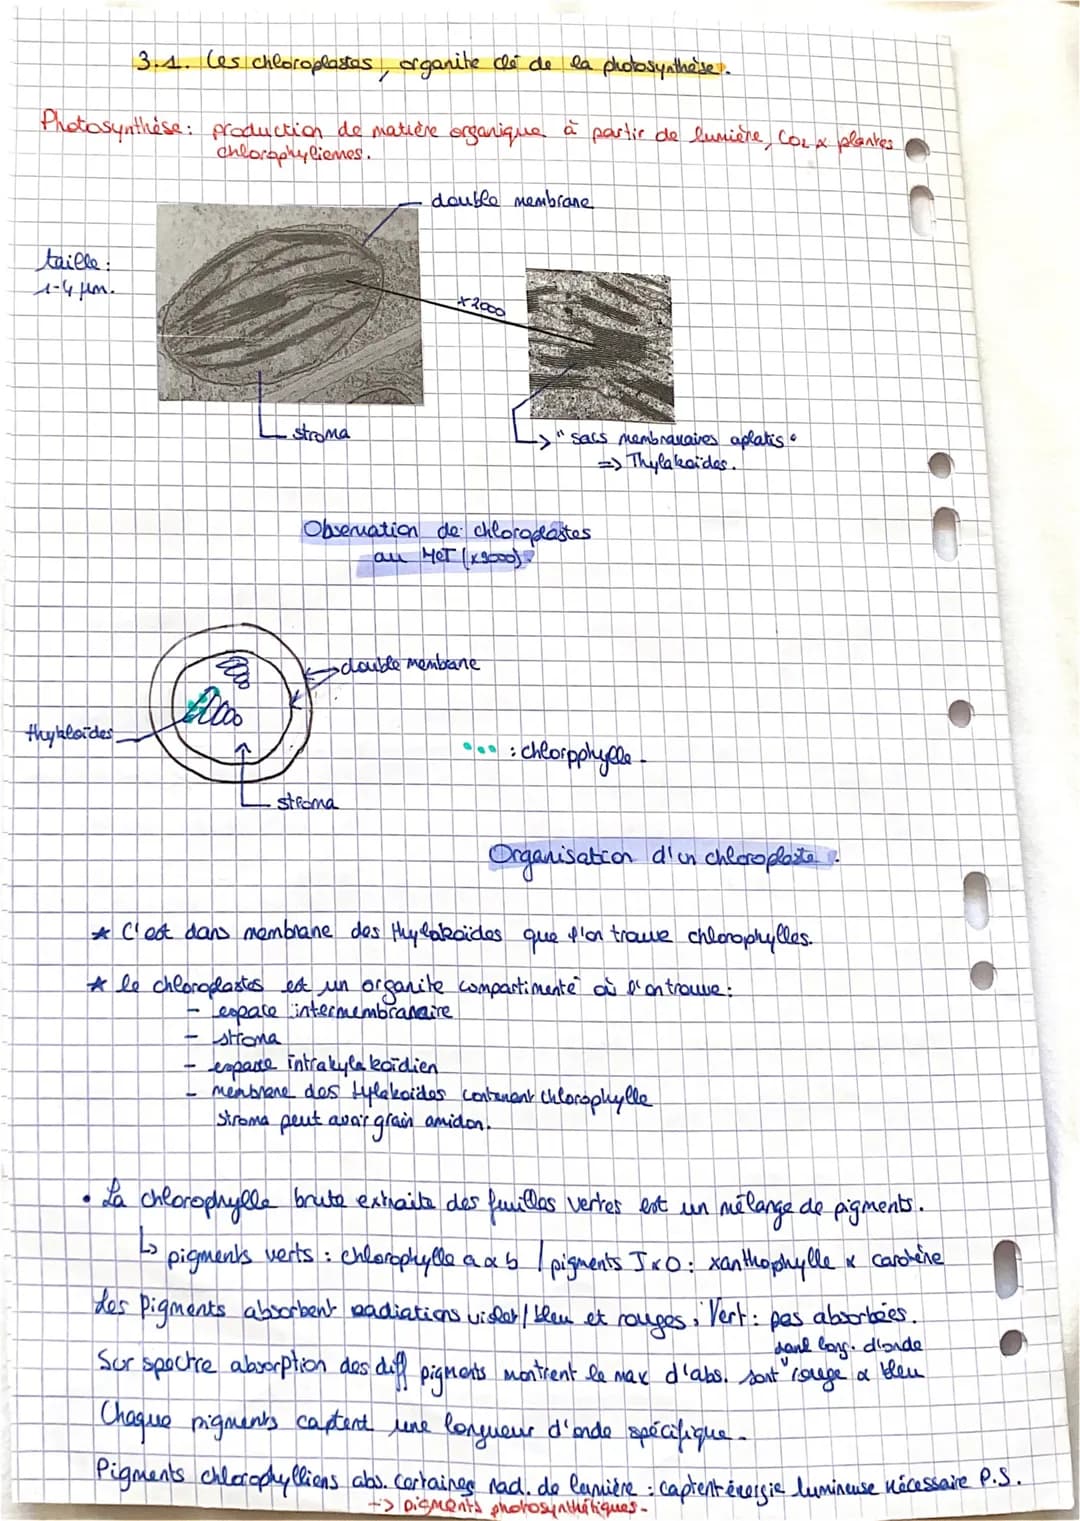 3.1. Les chloroplastes, organite clé de la photosynthèse.
Photosynthèse: production de matière organique à partir de lumière, CO2 x plantes
chlorophyliennes.
double membrane
taille:
1-4 µm.
x2000
stroma
-> "sacs membranaires aplatis"
=> Thylakoïdes.
Observation de chloroplastes
au MeT (x9000).
double membrane
thykloïdes
: chlorpphylle.
stroma
Organisation d'un chloroplaste.
* C'est dans membrane des thylakoïdes que l'on trouve chlorophylles.
* le chloroplastes est un organite compartimenté où l'on trouve:
- espace intermembranaire
- stroma
- espace intrakylakoïdien
- membrane des tylakoïdes contenant chlorophylle
stroma peut avoir grain amidon.
• La chlorophylle brute extraite des feuilles vertes est un mélange de pigments.
↳ pigments verts: chlorophylle a x b / pigments J x O: xanthophylle x carotène
Les pigments absorbent radiations violet/bleu et rouges, Vert: pas absorbées.
dans long. d'onde
Sur spectre absorption des diff pigments montrent le max d'abs. sont "rouge x bleu
Chaque pigments captent une longueur d'onde spécifique.
Pigments chlorophylliens abs. certaines rad. de lumière: captent énergie lumineuse nécessaire P.S.
-> pigments photosynthétiques.